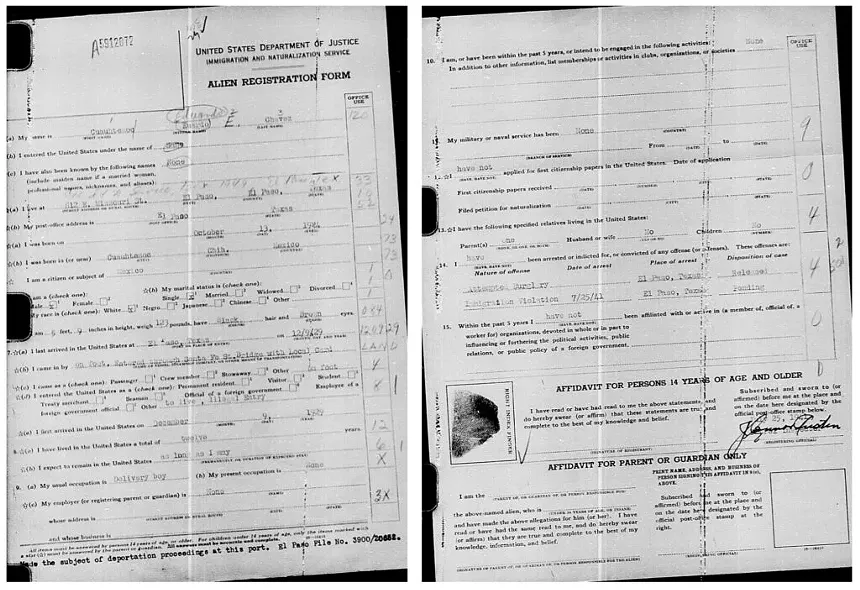 A5912072
UNITED STATES DEPARTMENT OF JUSTICE
IMMIGRATION AND NATURALIZATION SERVICE
ALIEN REGISTRATION FORM
OFFICE USE
(a) My name is Cuauhtemoc Eduardo E. Chavez
(b) I entered the United States under the name of same
(c) I have also been known by the following names None
(include maiden name if a married woman,
professional names, nicknames, and aliases):
(a) I live at 812 E. Missouri St. El Paso, El Paso,
(b) My post-office address is El Paso Texas
(a) I was born on October 13,
(b) I was born in (or near) Cuauhtemoc Chih. Mexico
I am a citizen or subject of Mexico
(a) I am a (check one): (b) My marital status is (check one):
Male Female Single Married Widowed Divorced
My race is (check one): White Negro Japanese Chinese Other
I am feet, 9 inches in height, weigh pounds, have Black hair and Brown eyes
7. (a) I last arrived in the United States at El Paso, Texas on 12/9/29
(b) I came in by on foot. Entered through Santa Fe St. Bridge with Local Card
(c) I came as a (check one): Passenger Crew member Stowaway Other on foot
(d) I entered the United States as a (check one): Permanent resident Visitor Student
Treaty merchant Seaman Official of a foreign government Employee of a
foreign government official Other to live, Illegal Entry
(a) I first arrived in the United States on December 9, 1929
(b) I have lived in the United States a total of twelve years.
(c) I expect to remain in the United States as long as I may
9. (a) My usual occupation is Delivery boy (b) My present occupation is None
(c) My employer (or registering parent or guardian) is None
whose address is
and whose business is
All items must be answered by persons 14 years of age or older. For children under 14 years of age, only the items marked with
a star must be answered by the parent or guardian. All answers must be accurate and complete.
Made the subject of deportation proceedings at this port. El Paso File No. 3900/
10. I am, or have been within the past 5 years, or intend to be engaged in the following activities: None
In addition to other information, list memberships or activities in clubs, organizations, or societies
OFFICE USE
11. My military or naval service has been None
From to
have not applied for first citizenship papers in the United States. Date of application
First citizenship papers received
Filed petition for naturalization
13. I have the following specified relatives living in the United States:
Parent(s) One Husband or wife No Children No
14. I have been arrested or indicted for, or convicted of any offense (or offenses). These offenses are:
Nature of offense Date of arrest Place of arrest Disposition of case
Attempted Burglary El Paso, Texas Released
Immigration Violation 7/25/41 El Paso, Texas Pending
15. Within the past 5 years I have not been affiliated with or active in (a member of, official of, a
worker for) organizations, devoted in whole or in part to
influencing or furthering the political activities, public
relations, or public policy of a foreign government.
AFFIDAVIT FOR PERSONS 14 YEARS OF AGE AND OLDER
RIGHT INDEX FINGER
I have read or have had read to me the above statements, and
do hereby swear (or affirm) that these statements are true and
complete to the best of my knowledge and belief.
Subscribed and sworn to (or
affirmed) before me at the place and
on the date here designated by the
official post-office stamp below.
(SIGNATURE OF REGISTRANT)
(REGISTERING OFFICIAL)
AFFIDAVIT FOR PARENT OR GUARDIAN ONLY
PRINT NAME, ADDRESS, AND BUSINESS OF
PERSON SIGNING THIS AFFIDAVIT IN 9(c),
ABOVE.
I am the
the above-named alien, who is
and have made the above allegations for him (or her). I have
read or have had the same read to me, and do hereby swear
(or affirm) that they are true and complete to the best of my
knowledge, information, and belief.
Subscribed and sworn to (or
affirmed) before me at the place and
on the date here designated by the
official post-office stamp at the
right.